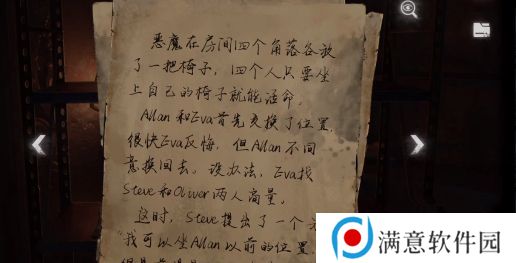 恶魔在房间四个角落各放
了一把椅子，四个人只要坐
上自己的椅子就能活命。
Allan和Eva首先交换了位置，
很快Eva反悔，但Allan不同
意换回去。没办法，Eva找
Steve和Oliver两人商量。
这时，Steve提出了一个
“我可以坐Allan以前的位置
满意软件园